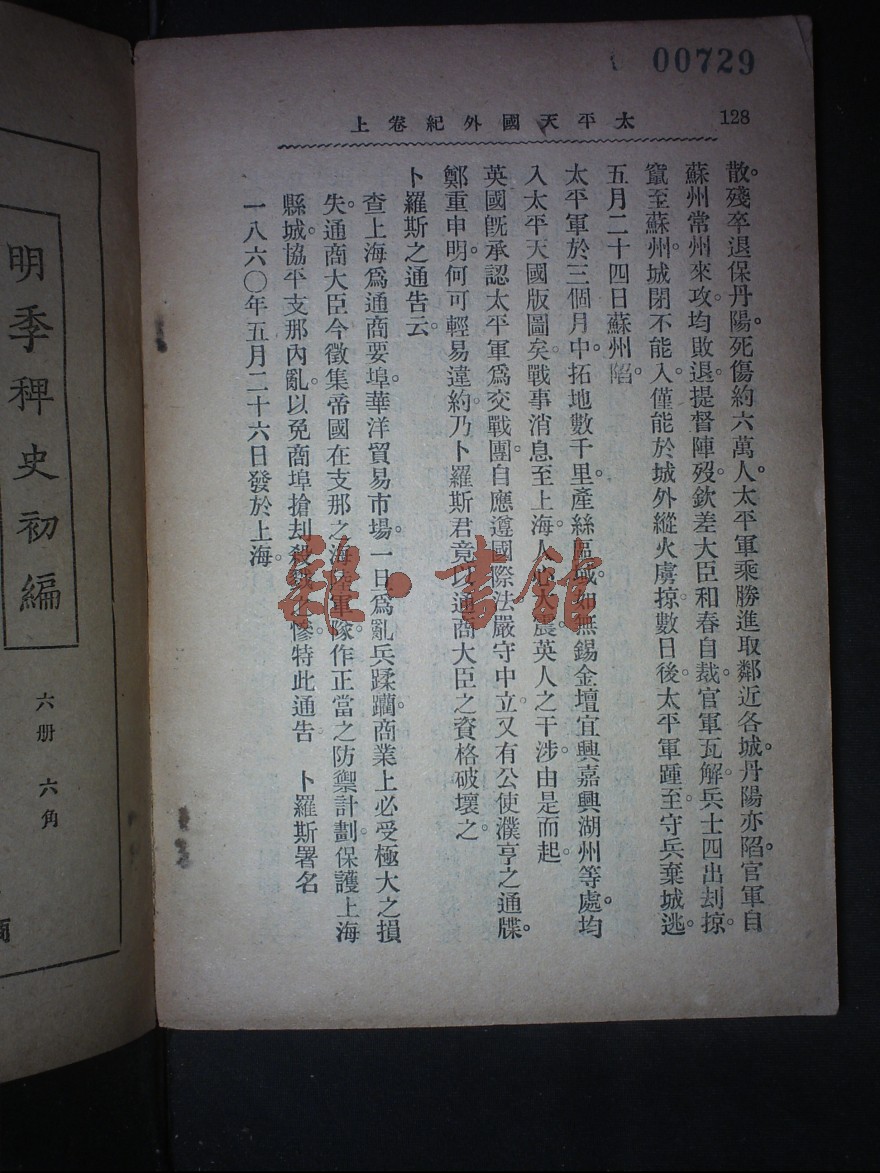 00729
128
太平天國外紀卷上
散。殘卒退保丹陽。死傷約六萬人。太平軍乘勝進取鄰近各城。丹陽亦陷。官軍自
蘇州常州來攻。均敗退。提督陣歿。欽差大臣和春自裁。官軍瓦解。兵士四出刦掠。
竄至蘇州。城閉不能入。僅能於城外縱火虜掠。數日後。太平軍踵至。守兵棄城逃。
五月二十四日蘇州陷。
太平軍於三個月中。拓地數千里。產絲區域。如無錫金壇宜興嘉興湖州等處。均
入太平天國版圖矣。戰事消息至上海。人心大震。英人之干涉。由是而起。
英國既承認太平軍爲交戰團。自應遵國際法。嚴守中立。又有公使濮亨之通牒。
鄭重申明。何可輕易違約。乃卜羅斯君竟以通商大臣之資格破壞之。
卜羅斯之通告云。
查上海爲通商要埠。華洋貿易市場。一旦爲亂兵蹂躪。商業上必受極大之損
失。通商大臣今徵集帝國在支那之海陸軍隊。作正當之防禦計劃。保護上海
縣城。協平支那內亂。以免商埠搶刦殺戮之慘。特此通告 卜羅斯署名
一八六〇年五月二十六日發於上海。
雜·書館
明季稗史初編
六册 六角